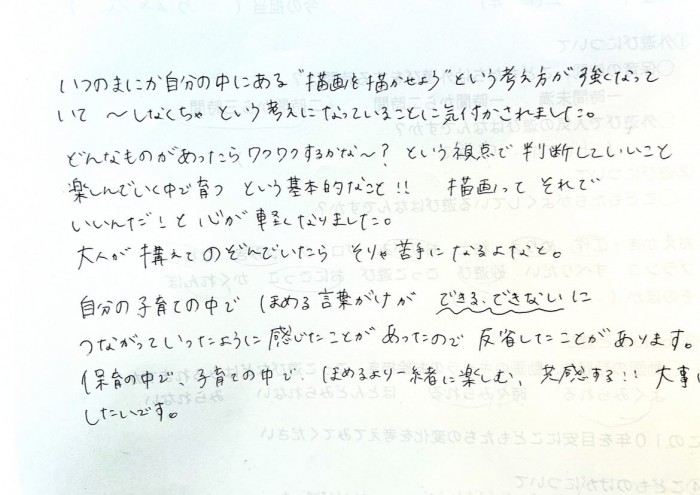 いつのまにか自分の中にある"描画を描かせよう"という考え方が強くなって
いて 〜しなくちゃ という考えになっていることに気付かされました。
どんなものがあったらワクワクするかな〜? という視点で判断していいこと
楽しんでいく中で育つ という基本的なこと!! 描画って それで
いいんだ!と心が軽くなりました。
大人が構えてのぞんでいたら そりゃ苦手になるよなと。
自分の子育ての中で ほめる言葉がけが できる、できないに
つながっていったように感じたことがあったので 反省したことがあります。
保育の中で、子育ての中で、ほめるより一緒に楽しむ、共感する!! 大事に
したいです。